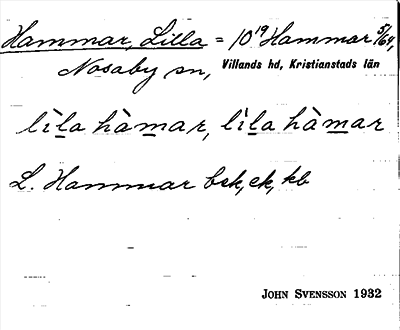 Hammar, Lilla = 10¹⁹ Hammar 5/64,
Nosaby sn, Villands hd, Kristianstads län
lìl̲a hàm̲ar, lìl̲a hàm̲ar
L. Hammar bsk, ek, kb
JOHN SVENSSON 1932